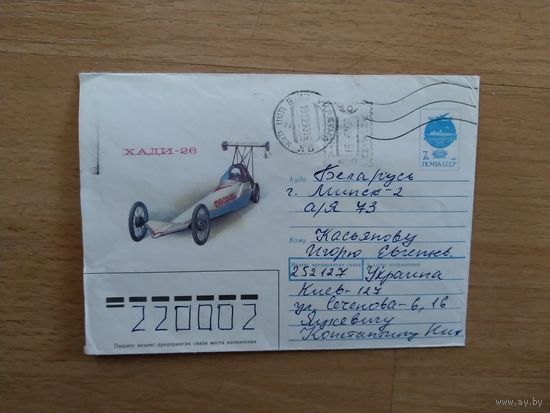 ХАДИ-26
7к
ПОЧТА СССР
Куда Беларусь
г. Минск-2
а/я 73
Кому Касьянову
Игорю Евгеньев.
Индекс предприятия связи и адрес отправителя
252127 Украина
Киев-127
ул. Сеченова-6, 16
Константину
220002
Пишите индекс предприятия связи места назначения
www.ay.by